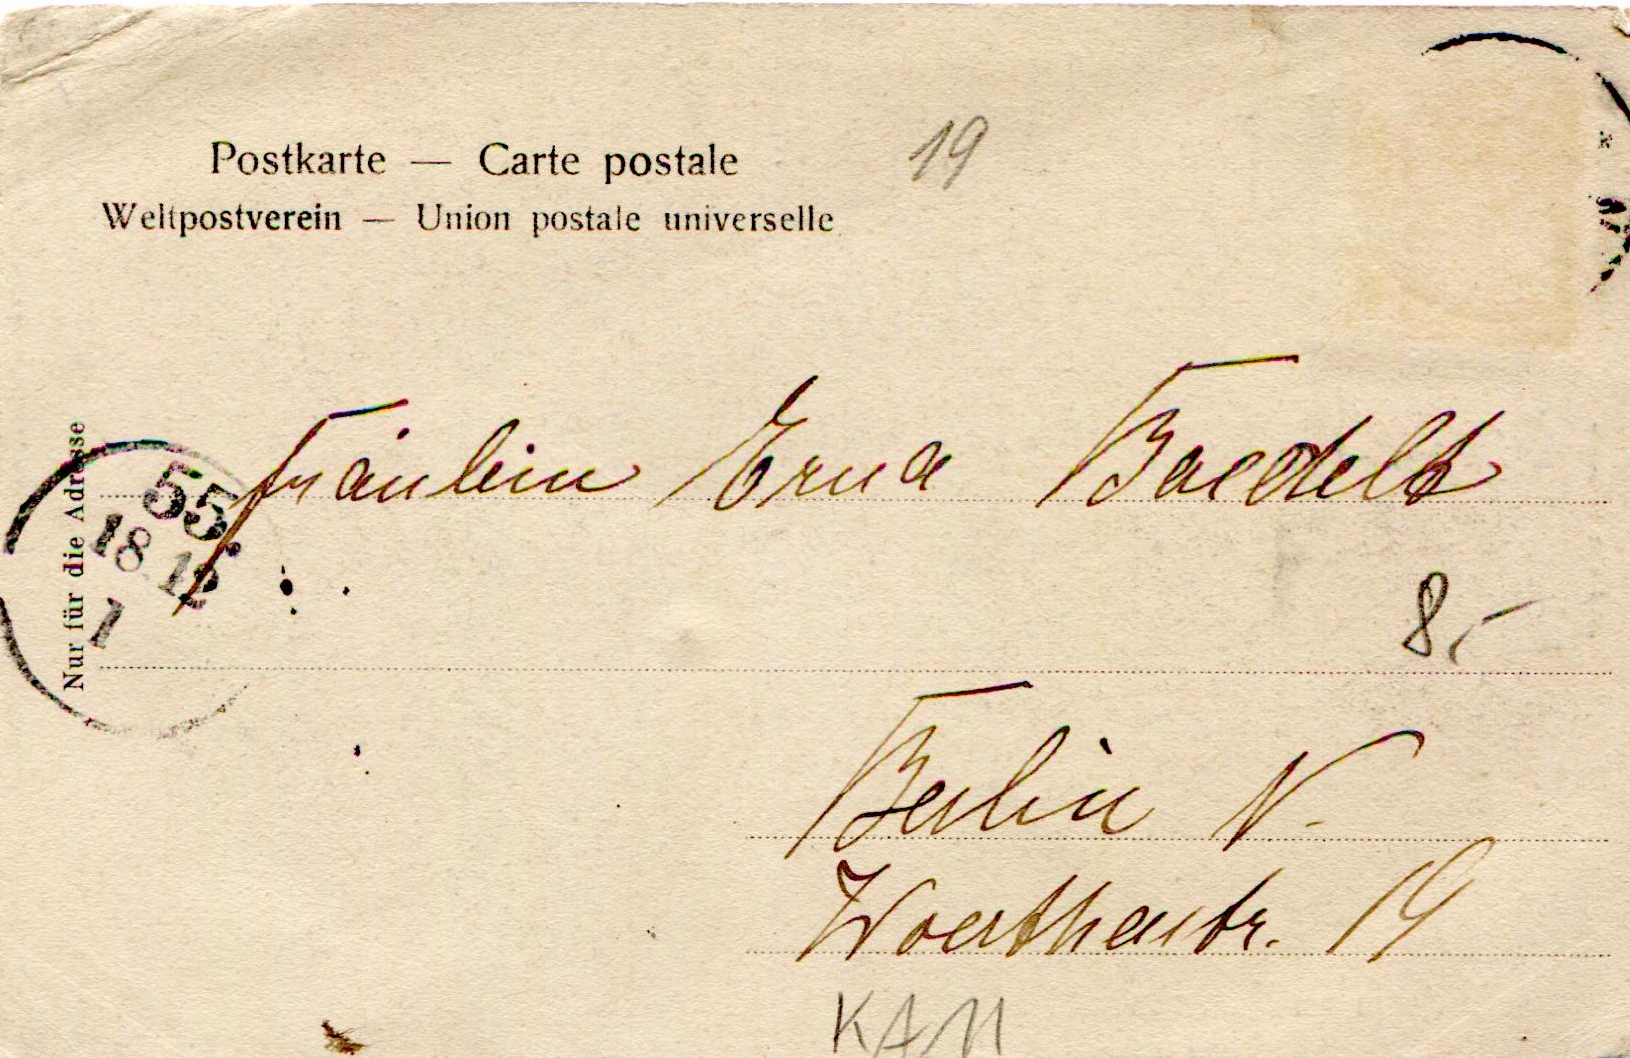 Postkarte — Carte postale
19
Weltpostverein — Union postale universelle
Nur für die Adresse
55.
18 12
1
Fräulein Erna
8,-
Berlin N.
Woertherstr. 19
KAM